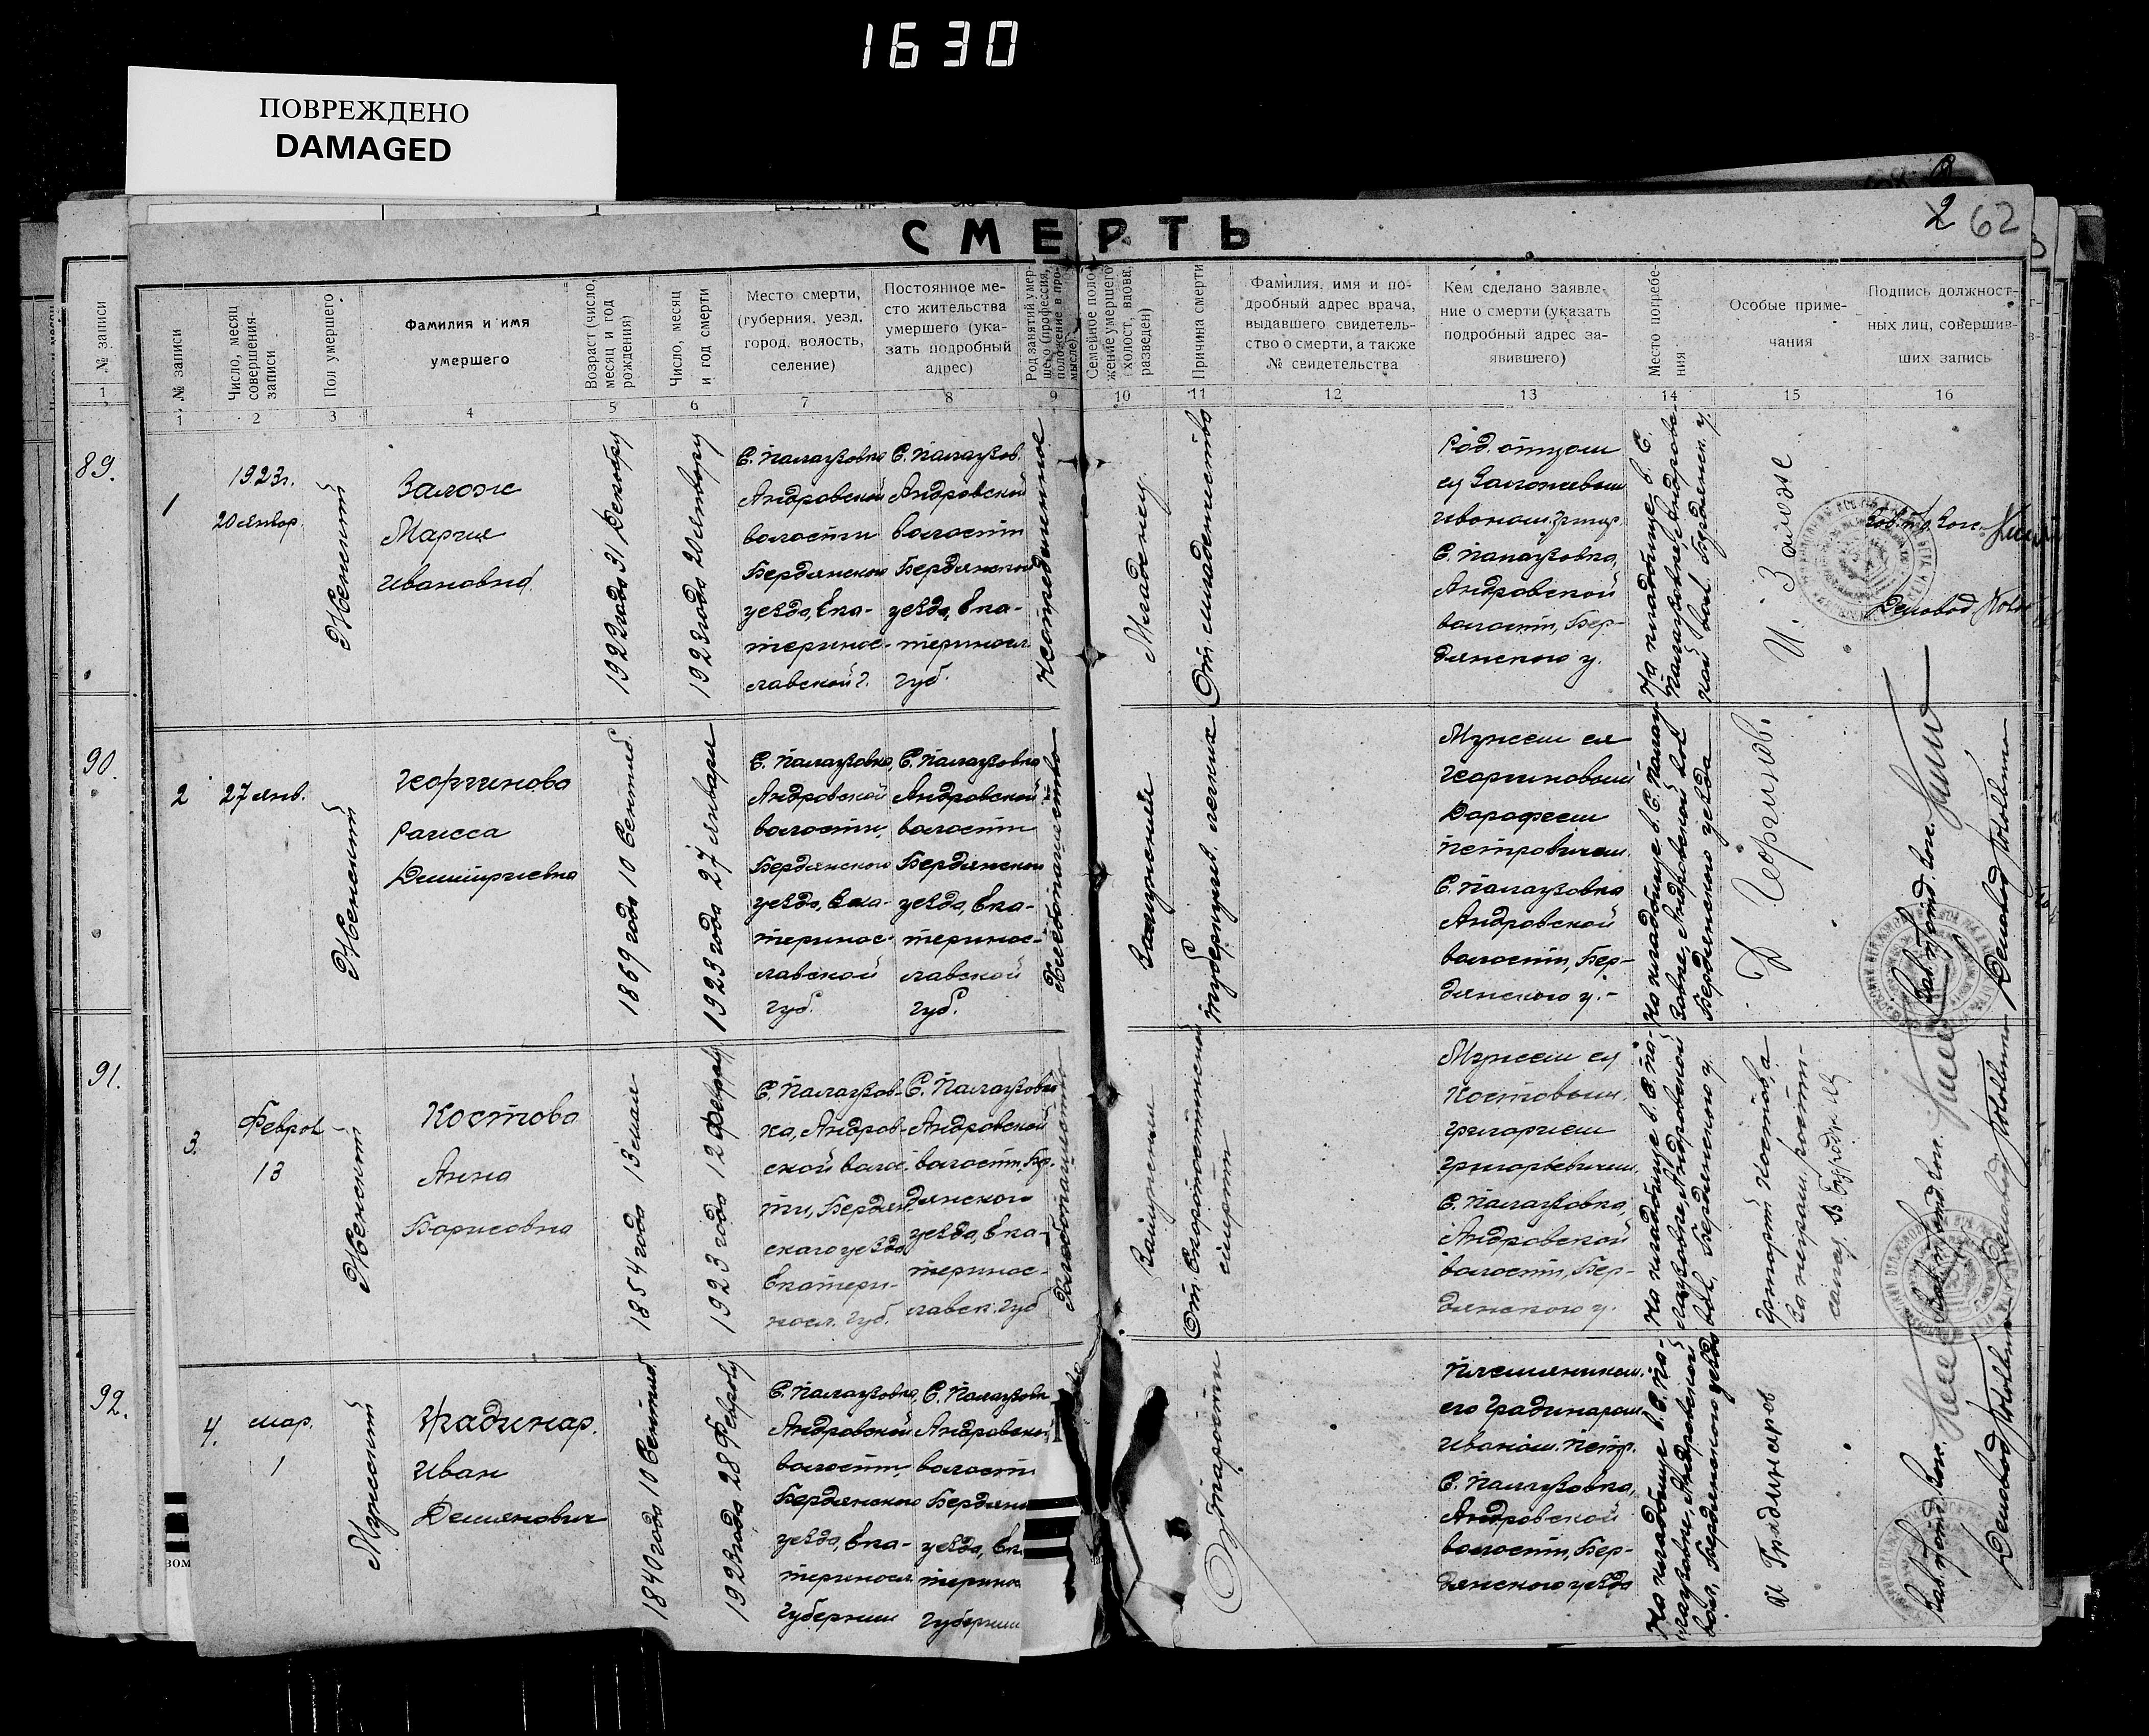 1630
ПОВРЕЖДЕНО
DAMAGED
2 62
СМЕРТЬ
№ записи
1
№ записи
Число, месяц
совершения
записи
Пол умершего
Фамилия и имя
умершего
Возраст (число,
месяц и год
рождения)
Число, месяц
и год смерти
Место смерти,
(губерния, уезд,
город, волость,
селение)
Постоянное ме-
сто жительства
умершего (ука-
зать подробный
адрес)
Род занятий умер-
шего (профессия,
положение в про-
мысле)
Семейное поло-
жение умершего
холост, вдова,
разведен)
Причина смерти
Фамилия, имя и по-
дробный адрес врача,
выдавшего свидетель-
ство о смерти, а также
№ свидетельства
Кем сделано заявле-
ние о смерти (указать
подробный адрес за-
явившего)
Место погребе-
ния
Особые приме-
чания
Подпись должност-
ных лиц, совершив-
ших запись
1 2 3 4 5 6 7 8 9 10 11 12 13 14 15 16
89.
1
1923г.
20 январ.
Женский
Залозе
Мария
Ивановна
1922 года 31 Декабря
1923 года 20 января
С. Палаузовка
Андровской
волости
Бердянского
уезда, Ека-
теринос-
лавской г.
С. Палаузов.
Андровской
волости
Бердянской
уезда, Ека-
териносл.
губ.
Младенец
От младенчества
Род. отцом
ея Залозевым
Иваном
С. Палаузовка,
Андровской
волости, Бер-
дянского у.
На кладбище в С.
Палаузовке, Андровс-
кой вол. Бердянск. у.
И. Залозе
90.
2
27 янв.
Женский
Георгинова
Раисса
Дмитриевна
1869 года 10 Сентяб.
1923 года 27 января
С. Палаузовка,
Андровской
волости,
Бердянского
уезда, Ека-
теринос-
лавской
губ.
С. Палаузовка
Андровской
волости
Бердянской
уезда, Ека-
теринос-
лавской
губ.
Хлебопашество
Замужняя
Туберкулез легких
Мужем ея
Георгиновым
Дорофеем
Петровичем.
С. Палаузовка
Андровской
волости, Бер-
дянского у.-
На кладбище в С. Палау-
зовке, Андровской вол
Бердянского уезда
Д Георгинов.
91.
3.
Феврал
13
Женский
Костова
Анна
Борисовна
1854 года 13 мая
1923 года 12 февра
С. Палаузов-
ка, Андров-
ской волос
ти, Бердян
ского уезда
Екатери-
носл. губ.
С. Палаузовка
Андровской
волости, Бер.
дянского
уезда, Ека-
теринос-
лавск. губ
Хлебопашество
Замужняя
От Скоропостижной
смерти
Мужем ея
Костовым.
Григорием
Григорьевичем.
С. Палаузовка,
Андровской
волости, Бер-
дянского у.
На кладбище в С. Па-
лаузовке, Андровской
вол, Бердянского у.
Григорий Костов, а
за неграмотн-
92.
4.
мар.
1
Мужской
Градинар.
Иван
Демянович
1840 года 10 Сентяб.
1923 года 28 Февраля
С. Палаузовка,
Андровской
волости,
Бердянского
уезда, Ека-
териносл.
Губернии
С. Палаузовк
Андровской
волости
Бердянс
уезда, Ек
теринос
Губернии
От старости
Племянником.
его Градинаром.
Иваном. Петр.
С. Палаузовка,
Андровской
волости, Бер-
дянского уезда
На кладбище в С. Па-
лаузовке, Андровской
вол, Бердянского уезда
И Градинаров